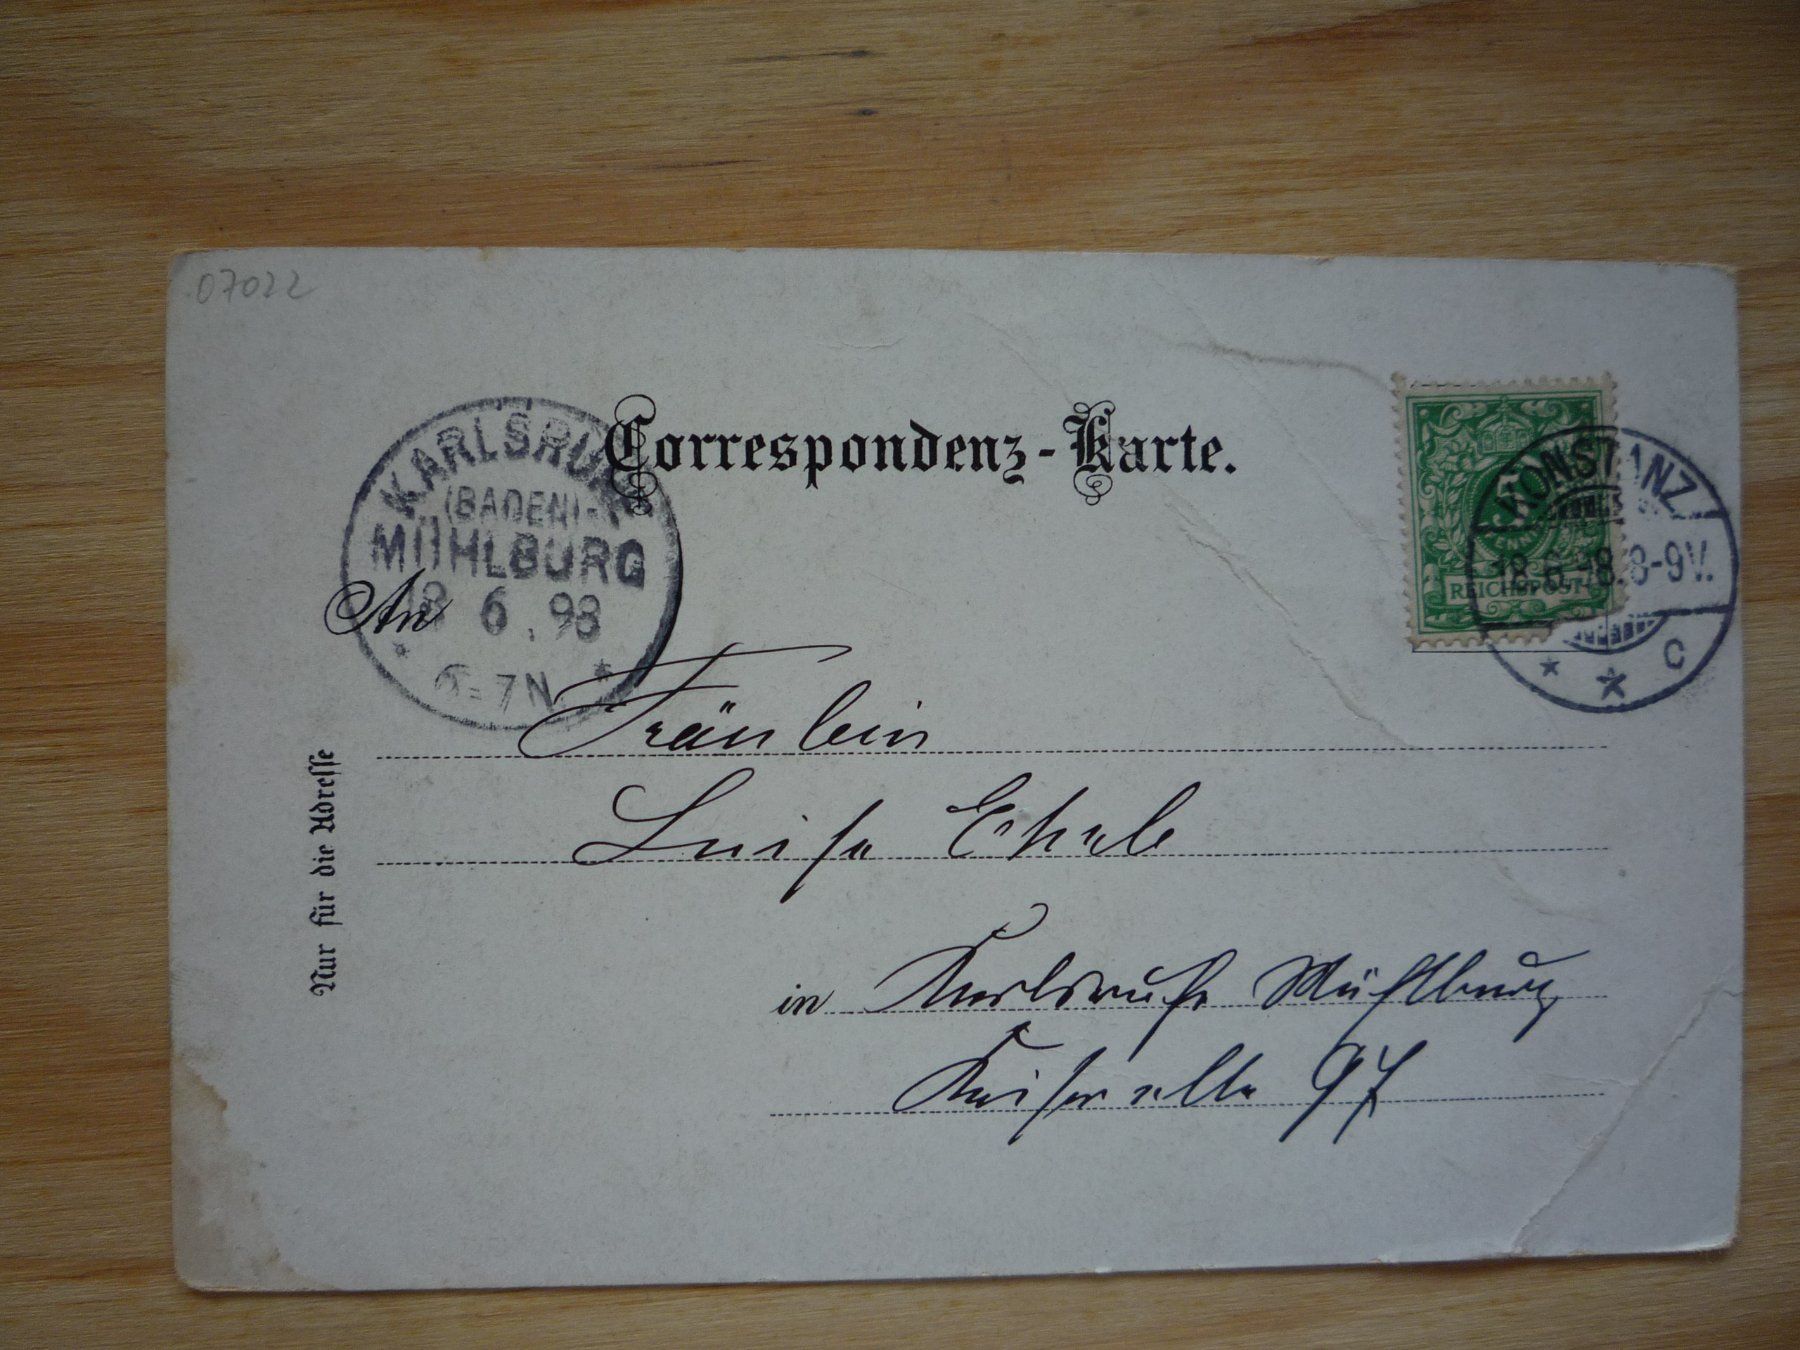 07022
Correspondenz-Karte.
KARLSRUHE
(BADEN)-
MÜHLBURG
18 6.98
6-7N
KONSTANZ
18.6.98.8-9V.
C
REICHSPOST
An
Fräulein
Luise Ehrle
in Karlsruhe Mühlburg
Kaiserallee 97
Nur für die Adresse